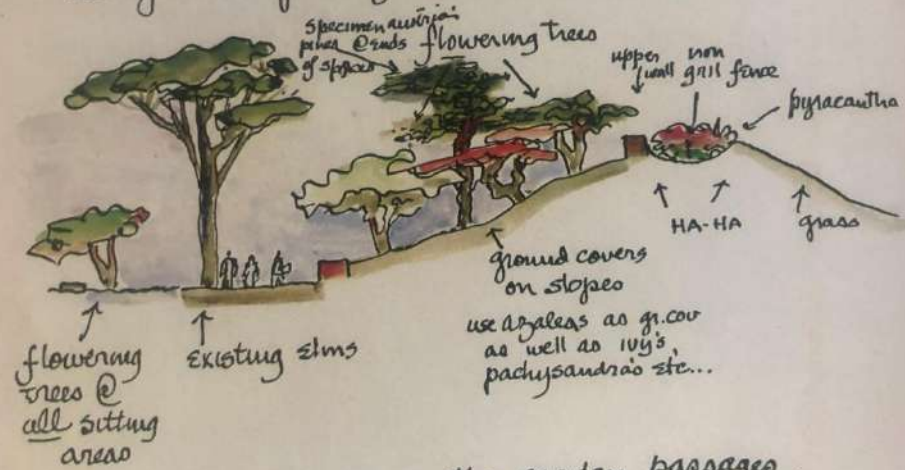 specimen austrian
pines @ ends
of spaces
flowering trees
upper
wall
iron
grill fence
pyracantha
HA-HA
grass
ground covers
on slopes
use azaleas as gr.cov
as well as ivy's,
pachysandra's etc...
flowering
trees @
all sitting
areas
existing elms
passages